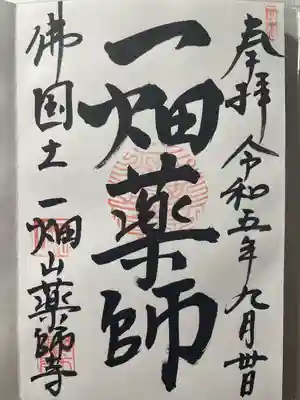 奉拝 令和五年九月卅日
一畑薬師
佛国土 一畑山薬師寺